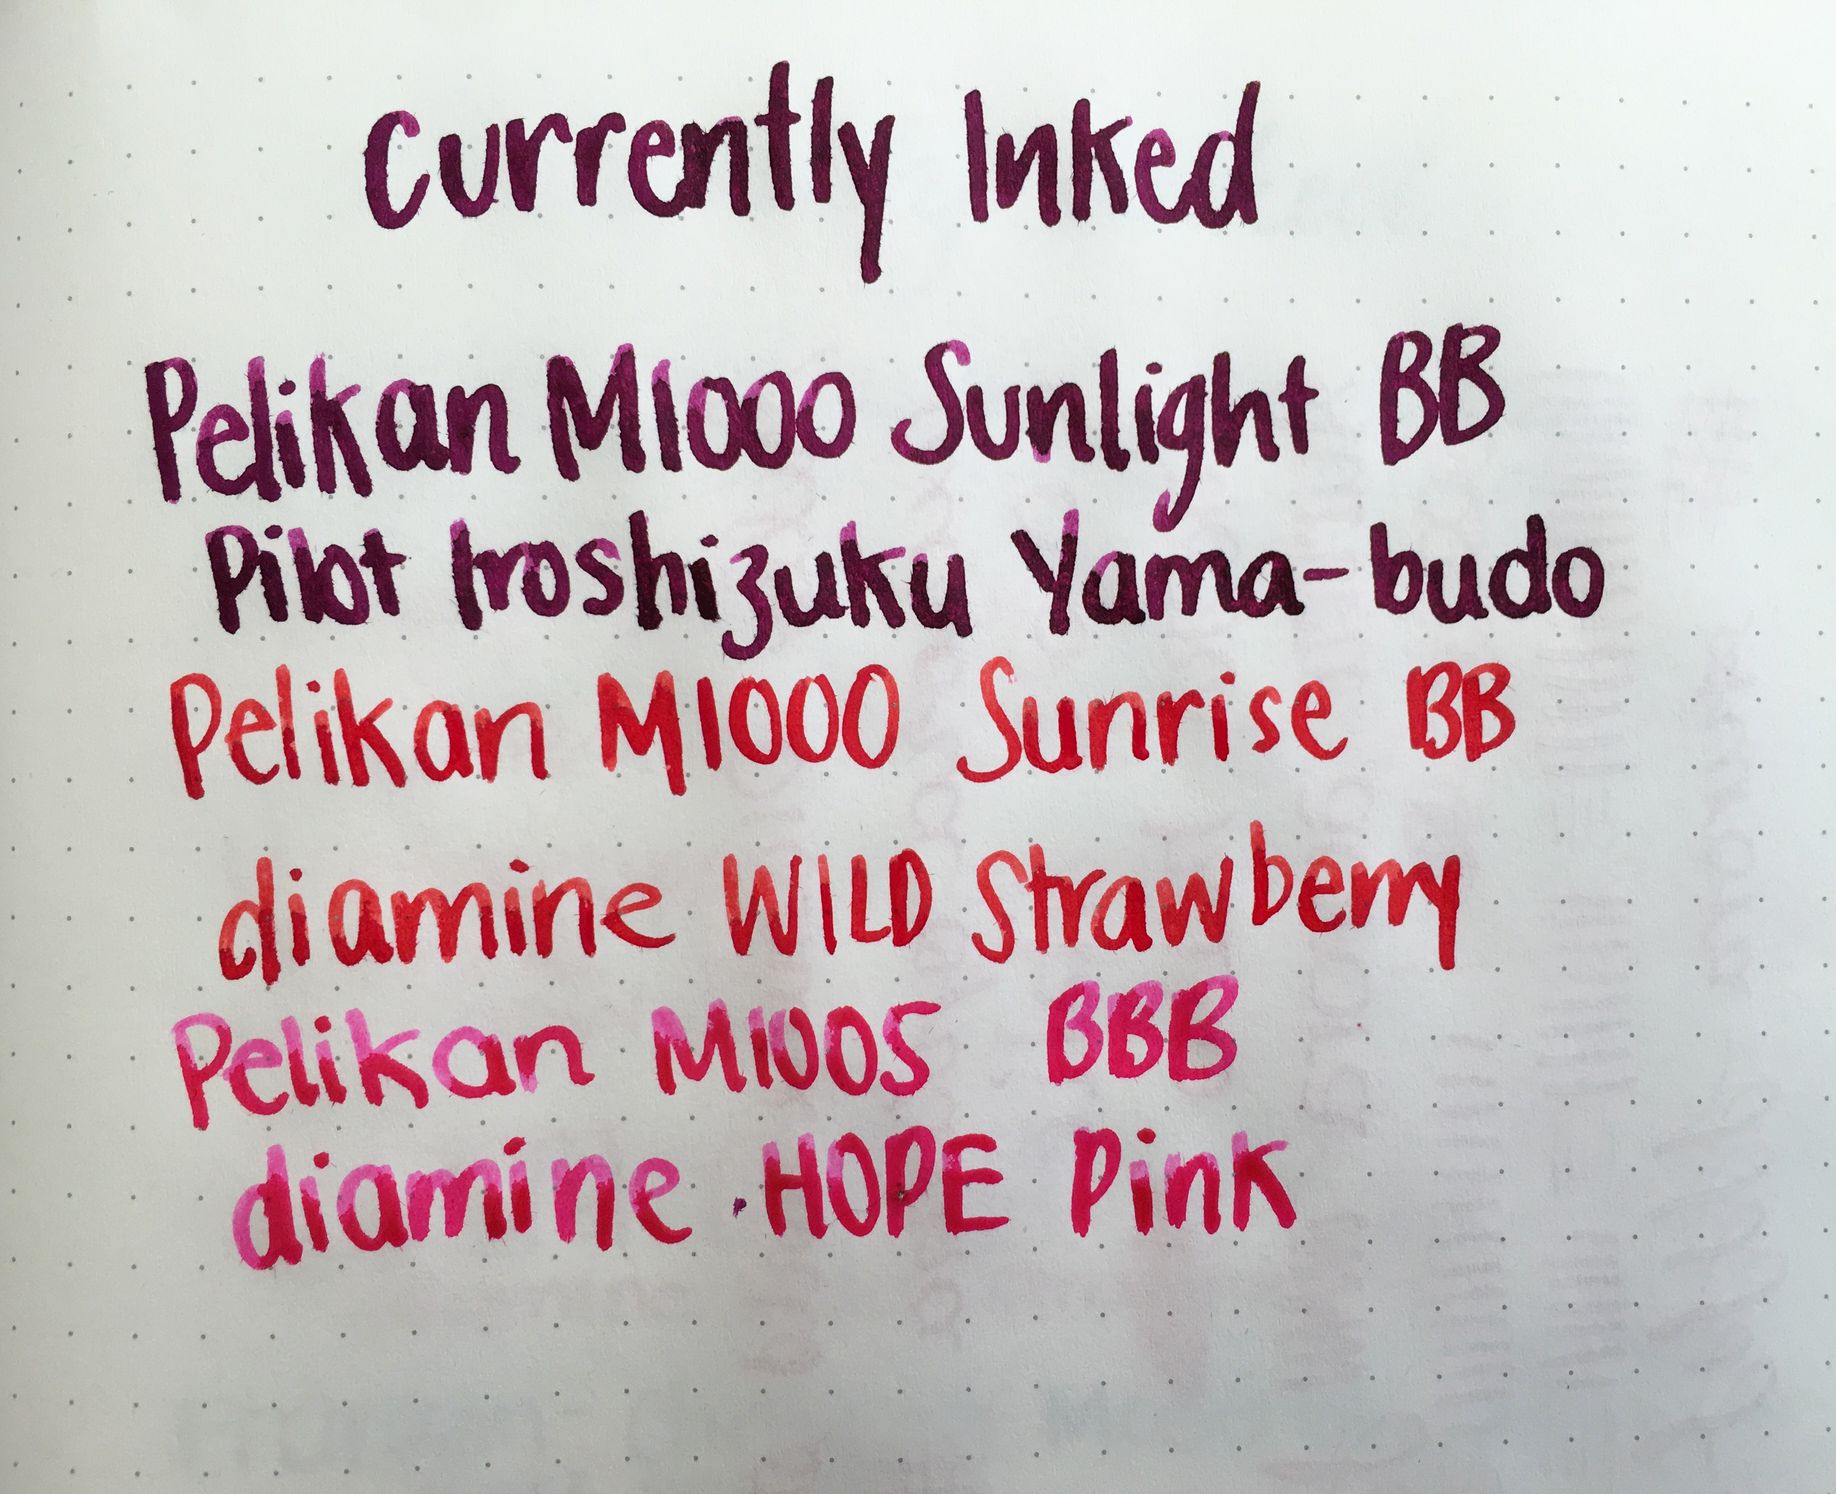 Currently Inked
Pelikan M1000 Sunlight BB
Pilot Iroshizuku Yama-budo
Pelikan M1000 Sunrise BB
diamine WILD Strawberry
Pelikan M1005 BBB
diamine HOPE Pink